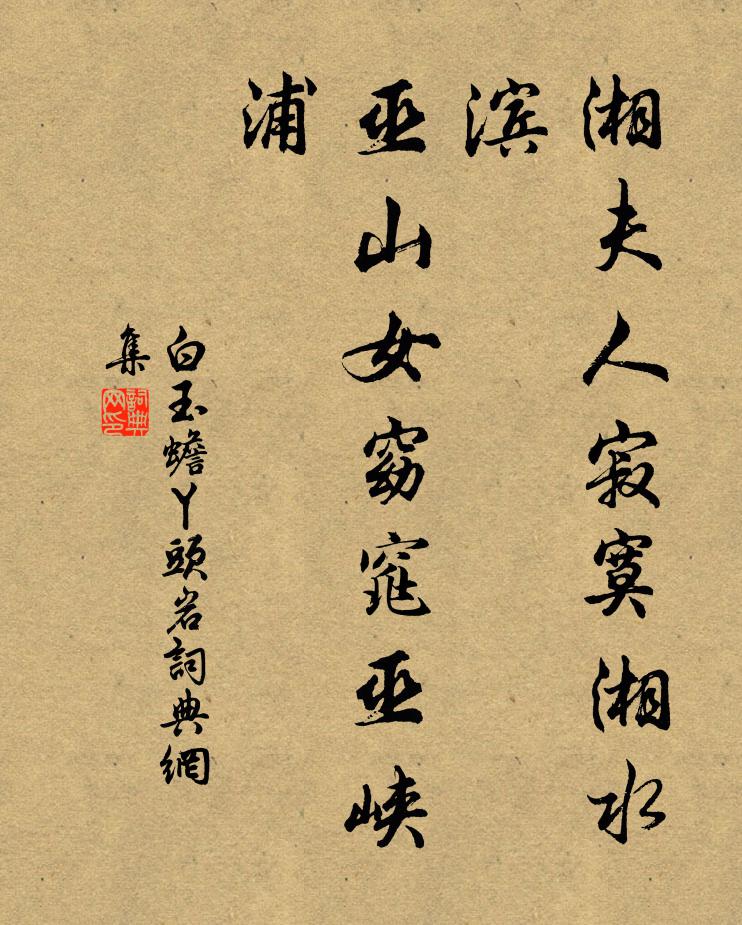 湘夫人寂寞湘水
滨
巫山女窈窕巫峡
浦
白玉蟾丫頭岩詞典網
集
詞典
网印